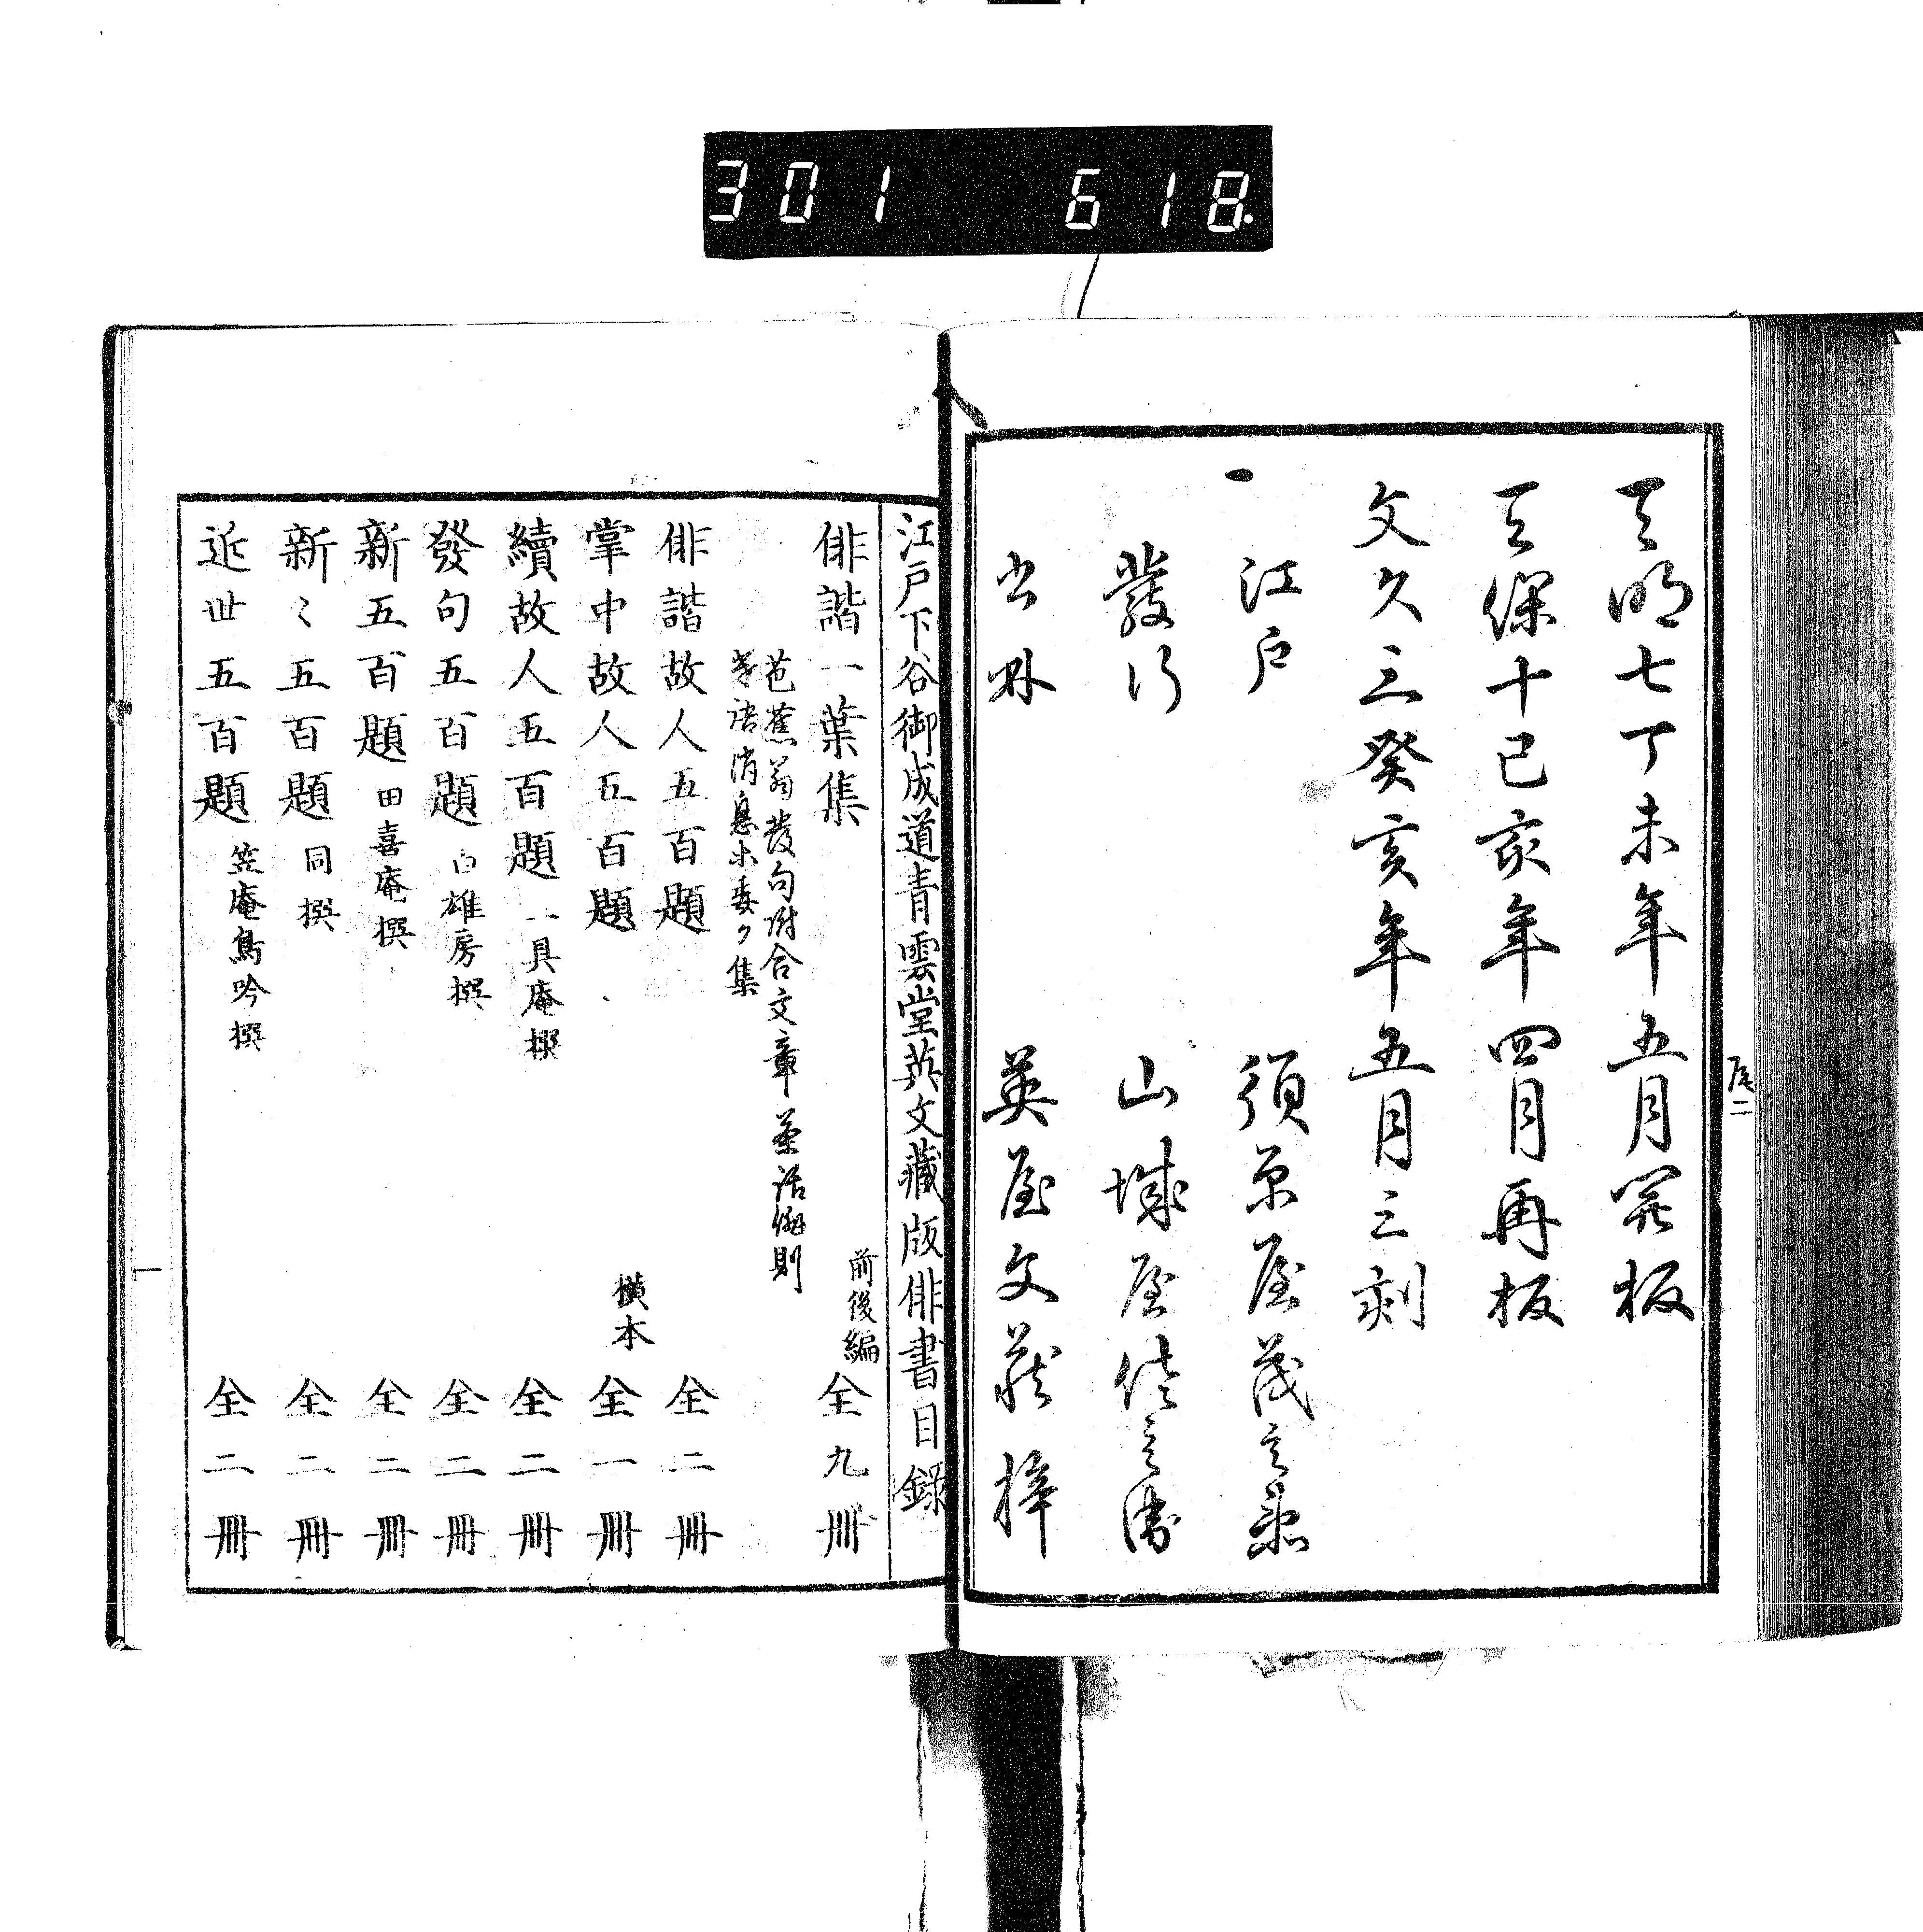 301 618.
天明七丁未年五月开板
天保十己亥年四月再板
文久三癸亥年五月三刻
江戸 須原屋茂兵衛
發行 山城屋佐兵衛
書林 英屋文藏梓
尾二
江戸下谷御成道青雲堂英文藏版俳書目録
俳諧一葉集 前後編 全九冊
芭蕉翁發句附合文章茶話
消息 委ク集
俳諧故人五百題 全二冊
掌中故人五百題 横本 全一冊
續故人五百題 一具庵撰 全二冊
發句五百題 白雄房撰 全二冊
新五百題 田喜庵撰 全二冊
新〻五百題 同撰 全二冊
近世五百題 笠庵鳥吟撰 全二冊
一